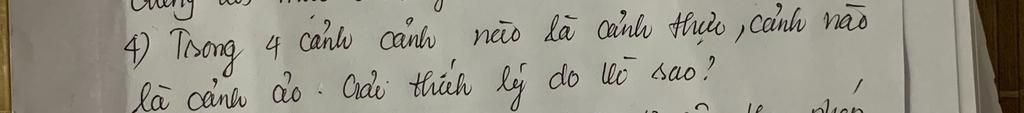 4) Trong 4 cảnh cảnh nào là cảnh thực, cảnh nào
là cảnh ảo. Giải thích lý do vì sao?